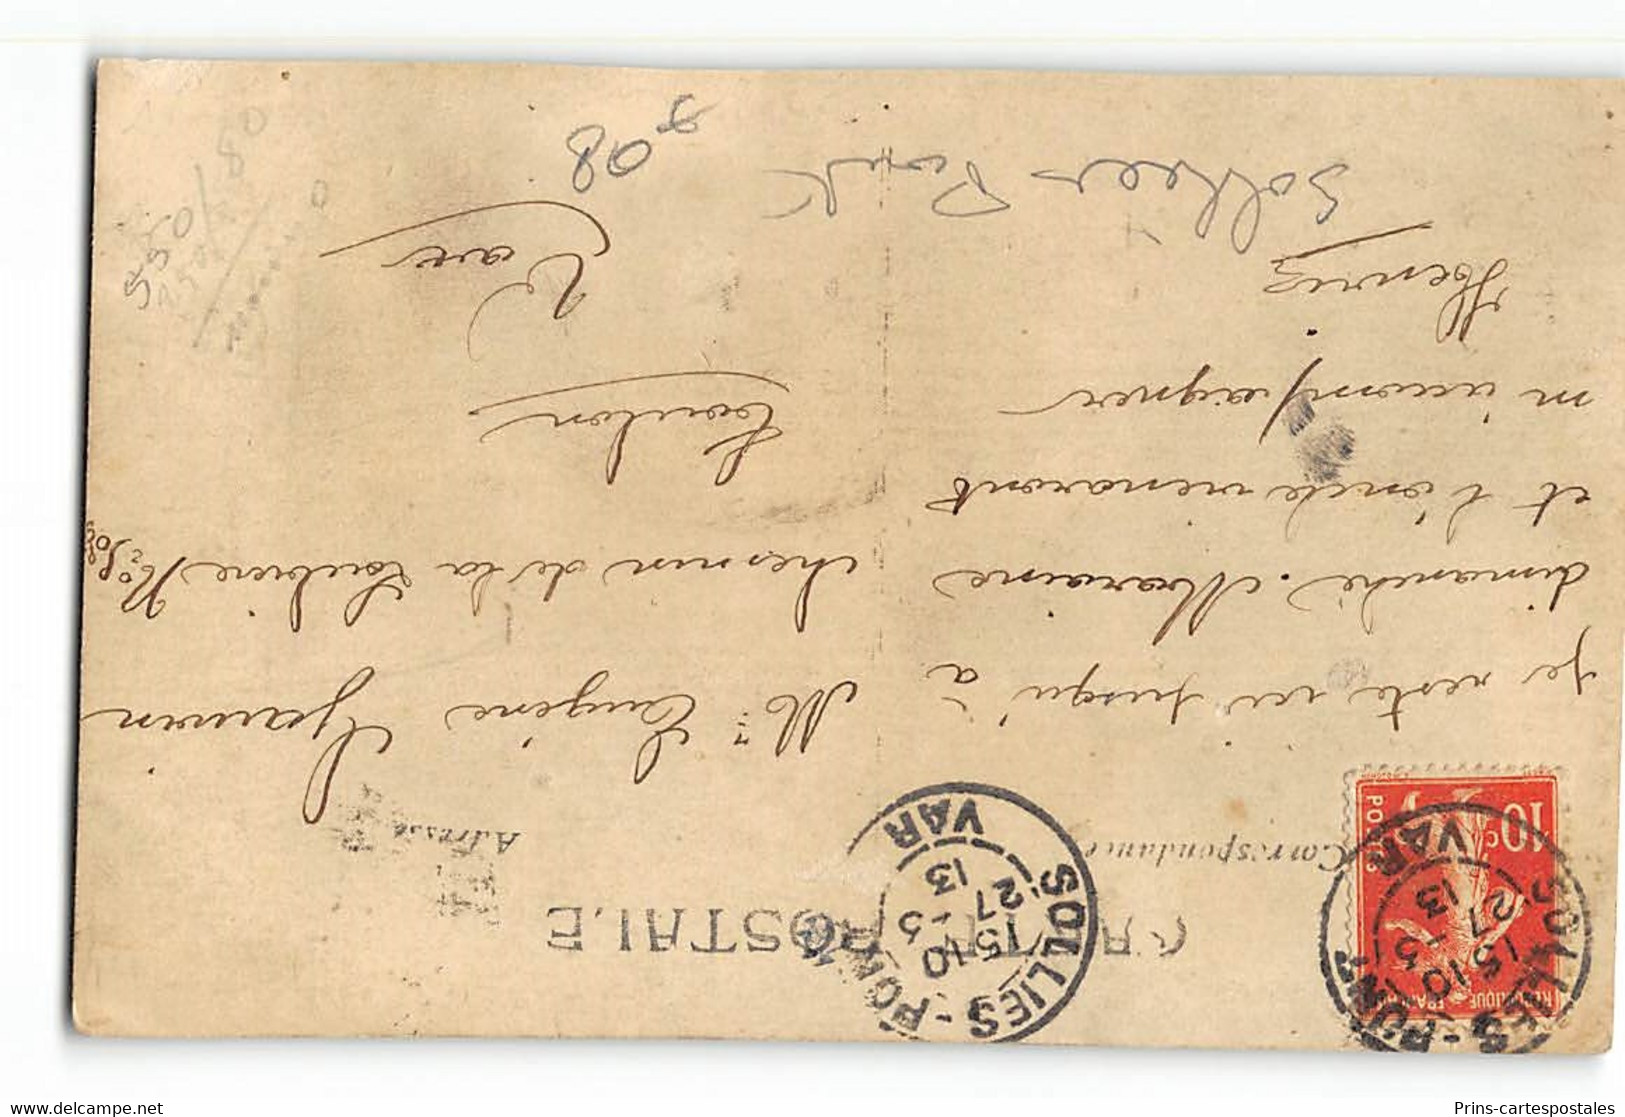 CARTE POSTALE
Correspondance
Adresse
10c
POSTES
REPUBLIQUE FRANÇAISE
SOLLIES-PONT
15 10
27 -5
13
VAR
SOLLIES-PONT
15 10
27 -5
13
VAR
Je reste ici jusqu'à
dimanche. Maraine
et l'oncle vienaront
m'accompagner
Henri
Mr Eugène Gauvin
chemin de la Loubière No
Toulon
Var
Sollies Pont
08
550
Prins-cartespostales
www.delcampe.net